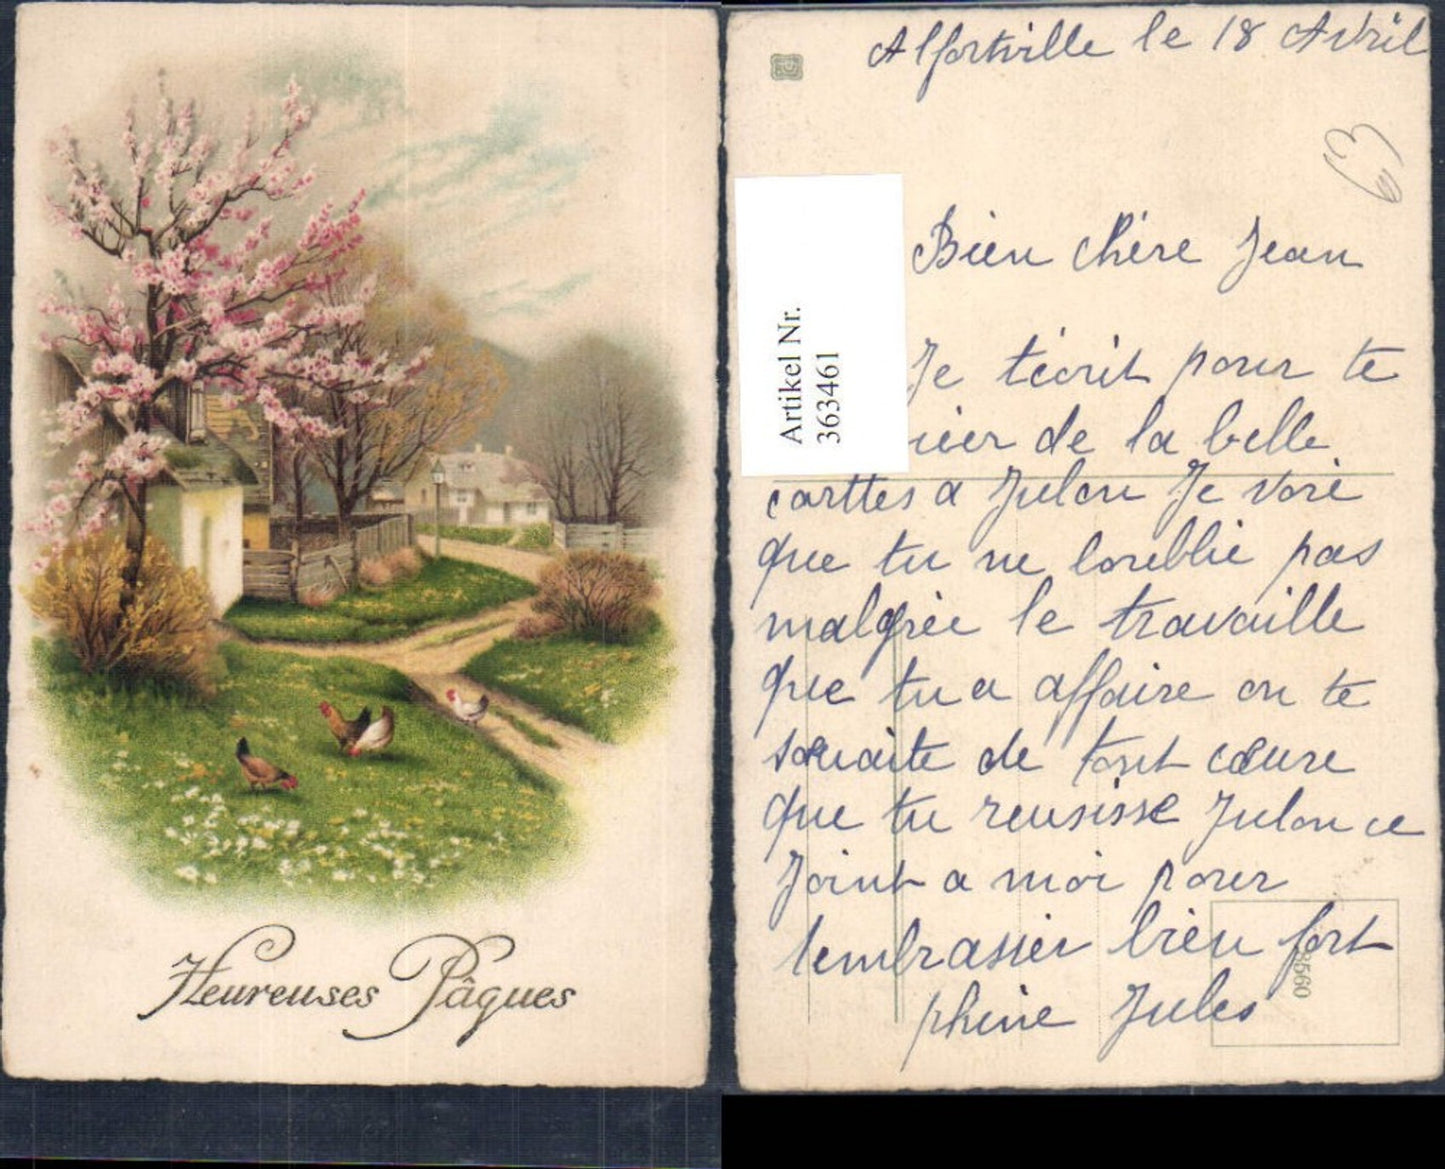 Heureuses Pâques
Alfortville le 18 Avril
63
Artikel Nr.
363461
Bien chère Jean
Je técrit pour te
cier de la belle
carttes a Julou Je voie
que tu ne loublie pas
malgrée le travaille
que tu a affaire on te
souaite de tout cœure
que tu reusisse Julou ce
Joint a moi pour
tembrasser bien fort
phine Jules
8560